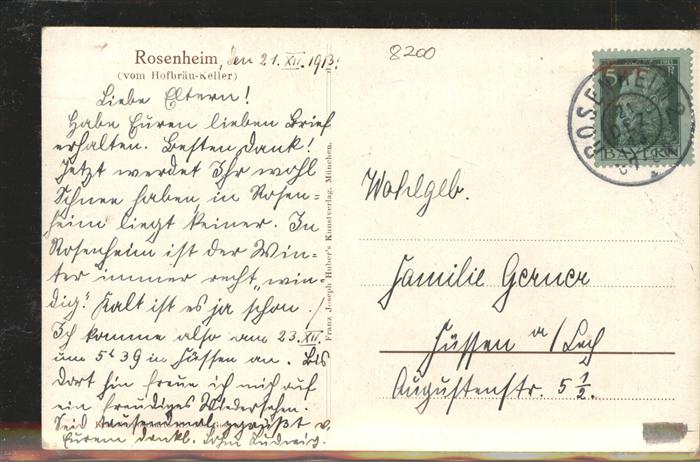 Rosenheim, den 21. XII. 1913.
(vom Hofbräu-Keller)
Liebe Eltern!
Habe Euren lieben Brief
erhalten. Besten Dank!
Jetzt werdet Ihr wohl
Schnee haben, in Rosen=
heim liegt keiner. In
Rosenheim ist der Win=
ter immer recht "win=
dig". Kalt ist es ja schon.
Ich komme also am 23. XII.
um 5 39 in Füssen an. Bis
dorthin freue ich mich auf
ein freudiges Wiedersehen.
Seid tausendmal gegrüßt v.
Eurem dankb. Sohn Ludwig.
Franz Joseph Huber's Kunstverlag, München.
8200
5
BAYERN
ROSENHEIM 2
21
DEZ
Wohlgeb.
Familie Gerner
Füssen a/Lech
Augustenstr. 5 1/2.